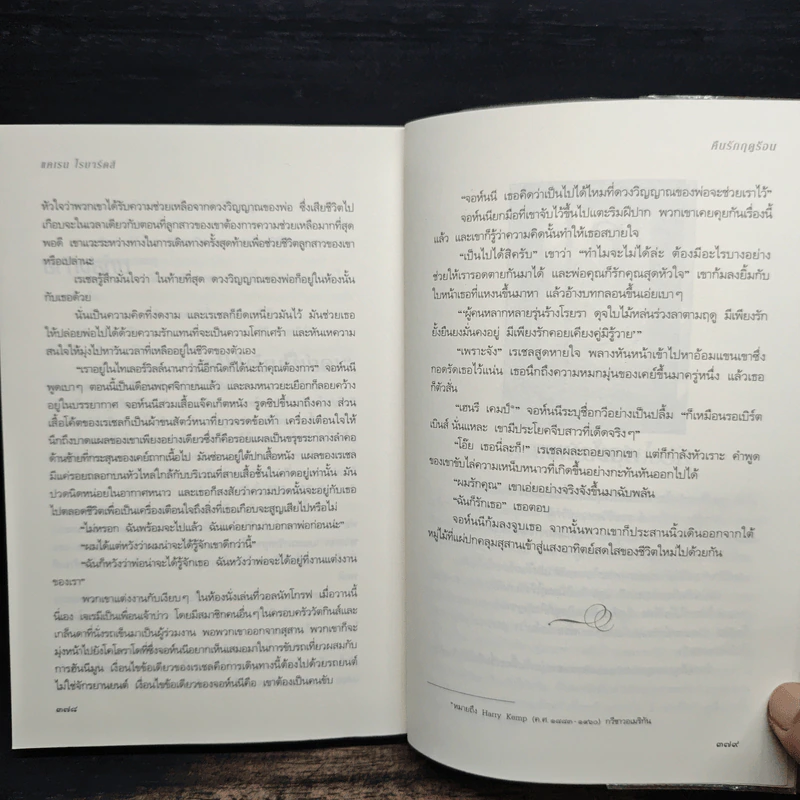 ชคเรน โรบาร์ดส์
หัวใจว่าพวกเขาได้รับความช่วยเหลือจากดวงวิญญาณของพ่อ ซึ่งเสียชีวิตไป
เกือบจะในเวลาเดียวกับตอนที่ลูกสาวของเขาต้องการความช่วยเหลือมากที่สุด
พอดี เขาแวะระหว่างทางในการเดินทางครั้งสุดท้ายเพื่อช่วยชีวิตลูกสาวของเขา
หรือเปล่านะ
เรเชลรู้สึกมั่นใจว่า ในท้ายที่สุด ดวงวิญญาณของพ่อก็อยู่ในห้องนั้น
กับเธอด้วย
นั่นเป็นความคิดที่งดงาม และเรเชลก็ยึดเหนี่ยวมันไว้ มันช่วยให้เธอ
ให้ปล่อยพ่อไปได้ด้วยความรักแทนที่จะเป็นความโศกเศร้า และหันเหความ
สนใจให้มุ่งไปหาวันเวลาที่เหลืออยู่ในชีวิตของตัวเอง
“เราอยู่ในไทเลอร์วิลล์นานกว่านี้อีกนิดก็ได้นะถ้าคุณต้องการ” จอห์นนี
พูดเบาๆ ตอนนี้เป็นเดือนพฤศจิกายนแล้ว และลมหนาวยะเยือกก็ลอยคว้าง
อยู่ในบรรยากาศ จอห์นนีสวมเสื้อแจ็คเก็ตหนัง รูดซิปขึ้นมาถึงคาง ส่วน
เสื้อโค้ตของเรเชลก็เป็นผ้าขนสัตว์หนาที่ยาวจรดข้อเท้า เครื่องเตือนใจให้
นึกถึงบาดแผลของเขาเพียงอย่างเดียวซึ่งก็คือรอยแผลเป็นขรุขระกลางลำคอ
ด้านซ้ายที่กระสุนของเคย์ถากเนื้อไป มันซ่อนอยู่ใต้ปกเสื้อหนัง แผลของเรเชล
มีแค่รอยถลอกบนหัวไหล่ใกล้กับบริเวณที่สายเสื้อชั้นในคาดอยู่เท่านั้น มัน
ปวดนิดหน่อยในอากาศหนาว และเธอก็สงสัยว่าความปวดนั้นจะอยู่กับเธอ
ไปตลอดชีวิตเพื่อเป็นเครื่องเตือนใจถึงสิ่งที่เธอเกือบจะสูญเสียไปหรือไม่
“ไม่หรอก ฉันพร้อมจะไปแล้ว ฉันแค่อยากมาบอกลาพ่อก่อนน่ะ”
“ผมได้แต่หวังว่าผมน่าจะได้รู้จักเขาดีกว่านี้”
“ฉันก็หวังว่าพ่อน่าจะได้รู้จักเธอ ฉันหวังว่าพ่อจะได้อยู่ที่งานแต่งงาน
ของเรา”
พวกเขาแต่งงานกันเงียบๆ ในห้องนั่งเล่นที่วอลนัทโกรฟ เมื่อวานนี้
นี่เอง เจเรมีเป็นเพื่อนเจ้าบ่าว โดยมีสมาชิกคนอื่นๆ ในครอบครัววัตกินส์และ
เกล็นดาที่นั่งรถเข็นมาเป็นผู้ร่วมงาน พอพวกเขาออกจากสุสาน พวกเขาก็จะ
มุ่งหน้าไปยังโคโลราโดที่ซึ่งจอห์นนีอยากเห็นเสมอมาในการขับรถเที่ยวผสมกับ
การฮันนีมูน เงื่อนไขข้อเดียวของเรเชลคือการเดินทางนี้ต้องไปด้วยรถยนต์
ไม่ใช่จักรยานยนต์ เงื่อนไขข้อเดียวของจอห์นนีคือ เขาต้องเป็นคนขับ
๓๗๘
คืนรักฤดูร้อน
“จอห์นนี เธอคิดว่าเป็นไปได้ไหมที่ดวงวิญญาณของพ่อจะช่วยเราไว้”
จอห์นนียกมือที่เขาจับไว้ขึ้นไปแตะริมฝีปาก พวกเขาเคยคุยกันเรื่องนี้
แล้ว และเขาก็รู้ว่าความคิดนั้นทำให้เธอสบายใจ
“เป็นไปได้สิครับ” เขาว่า “ทำไมจะไม่ได้ล่ะ ต้องมีอะไรบางอย่าง
ช่วยให้เรารอดตายกันมาได้ และพ่อคุณก็รักคุณสุดหัวใจ” เขาก้มลงยิ้มกับ
ใบหน้าเธอที่แหงนขึ้นมาหา แล้วอ้างบทกลอนขึ้นเอ่ยเบาๆ
“‘ผู้คนหลากหลายรุ่นร้างโรยรา ดุจใบไม้หล่นร่วงลาตามฤดู มีเพียงรัก
ยั้งยืนยงมั่นคงอยู่ มีเพียงรักคอยเคียงคู่มิรู้วาย’”
“เพราะจัง” เรเชลสูดหายใจ พลางหันหน้าเข้าไปหาอ้อมแขนเขาซึ่ง
กอดรัดเธอไว้แน่น เธอนึกถึงความหมกมุ่นของเคย์ขึ้นมาครู่หนึ่ง แล้วเธอ
ก็ตัวสั่น
“เฮนรี เคมป์*” จอห์นนีระบุชื่อกวีอย่างเป็นปลื้ม “ก็เหมือนรอเบิร์ต
เบินส์ นั่นแหละ เขามีประโยคจีบสาวที่เด็ดจริงๆ”
“โอ๊ย เธอนี่ละก็!” เรเชลผละถอยจากเขา แต่ก็กำลังหัวเราะ คำพูด
ของเขาขับไล่ความเหน็บหนาวที่เกิดขึ้นอย่างกะทันหันออกไปได้
“ผมรักคุณ” เขาเอ่ยอย่างจริงจังขึ้นมาฉับพลัน
“ฉันก็รักเธอ” เธอตอบ
จอห์นนีก้มลงจูบเธอ จากนั้นพวกเขาก็ประสานนิ้วเดินออกจากใต้
หมู่ไม้ที่แผ่ปกคลุมสุสานเข้าสู่แสงอาทิตย์สดใสของชีวิตใหม่ไปด้วยกัน
*หมายถึง Harry Kemp (ค.ศ. ๑๘๘๓-๑๙๖๐) กวีชาวอเมริกัน
๓๗๙